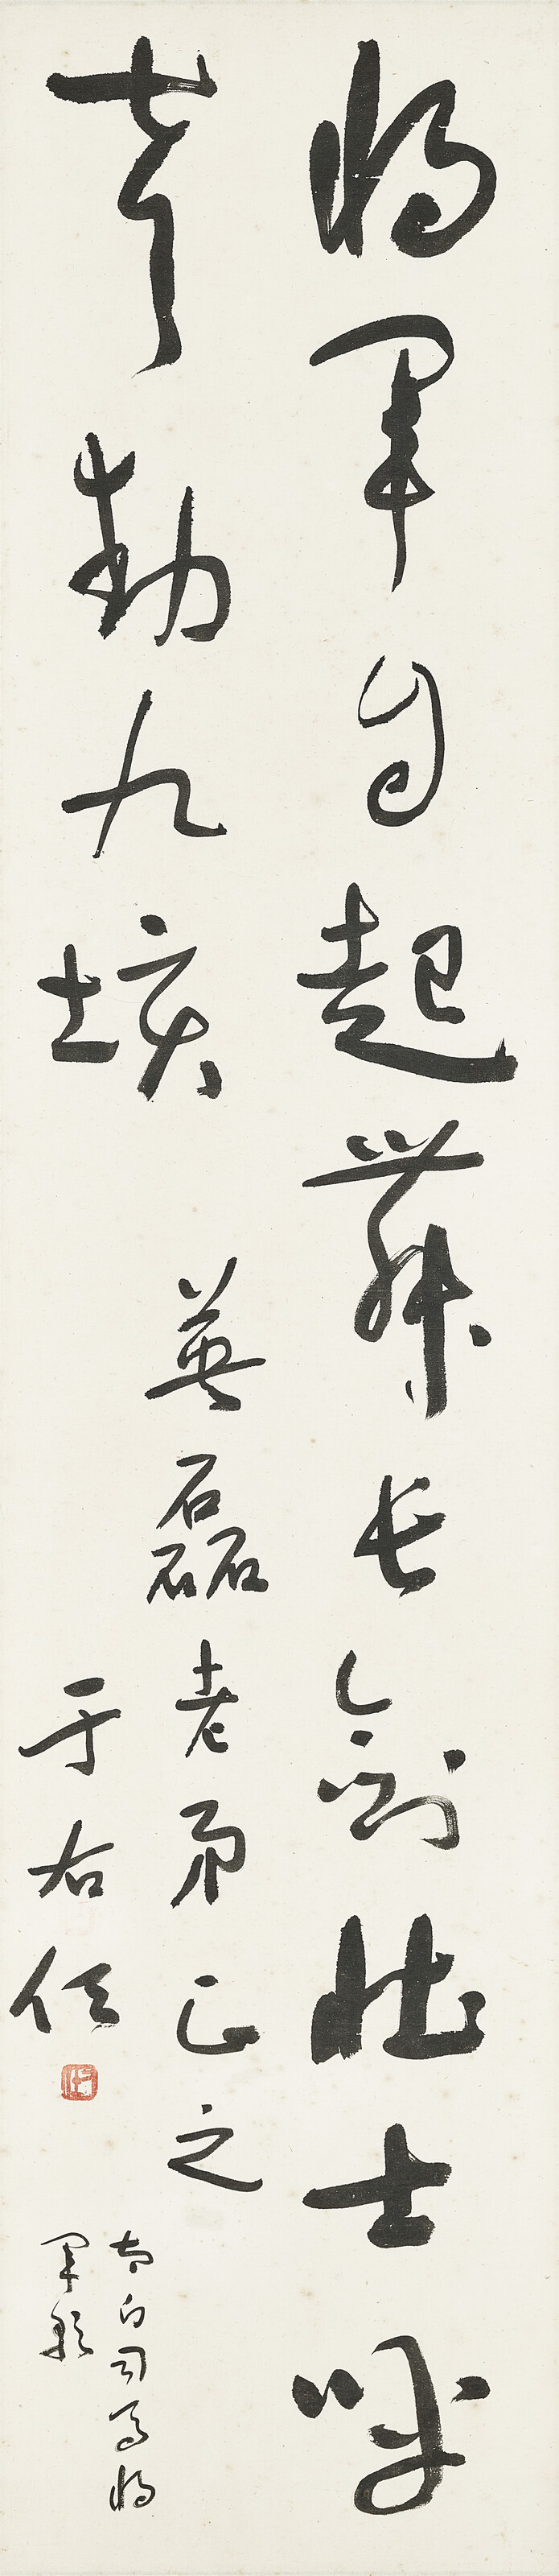 將軍自起舞長劍壯士呼
聲動九垓
英磊老弟正之
于右任
太白司馬將
軍歌